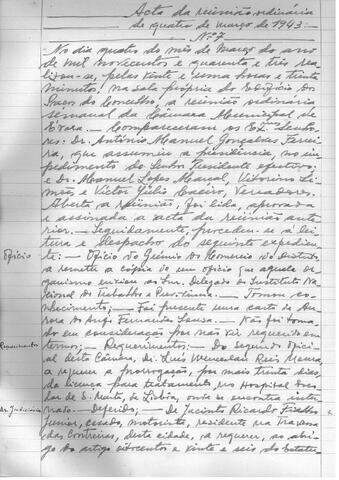 Acta da reunião ordinária
de quatro de março de 1943:
Nº 7
No dia quatro do mês de Março do ano
de mil novecentos e quarenta e três rea-
lisou-se, pelas vinte e uma horas e trinta
minutos, na sala própria do Edifício dos
Paços do Concelho, a reunião ordinária
semanal da Câmara Municipal de
Évora. — Compareceram os Ex.mos Senho-
res: Dr. António Manuel Gonçalves Ferrei-
ra, que assumiu a presidência, por im-
pedimento do Senhor Presidente efectivo
e Dr. Manuel Lopes Marçal, Vitorino Si-
mões e Victor Júlio Caeiro, Vereadores.
Aberta a reunião, foi lida, aprovada
e assinada a acta da reunião ante-
rior. — Seguidamente, procedeu-se à lei-
tura e despacho do seguinte expedien-
te: — Ofício do Grémio do Comercio do distrito,
a remeter a cópia de um ofício que aquele or-
ganismo enviou ao Snr. Delegado do Instituto Na-
cional do Trabalho e Previdência. — Tomou co-
nhecimento; — Foi presente uma carta de Au-
rora do Fernanda Sousa. — Não foi toma-
do em consideração por não vir requerido em
termos; — Requerimentos: — Do segundo ofici-
al desta Câmara, Luís Wenceslau Reis
a requerer a prorrogação, por mais trinta dias,
da licença para tratamento, no Hospital Esco-
lar de S. Marta, de Lisboa, onde se encontra inter-
nado. — Deferido; — De Jacinto Ricardo Fialho
Junior, casado, motorista, residente na Travessa
das Gontreiras, desta cidade, a requerer, ao abri-
go do artigo oitocentos e vinte e seis do
Ofício
Requerimentos
As. Judiciária